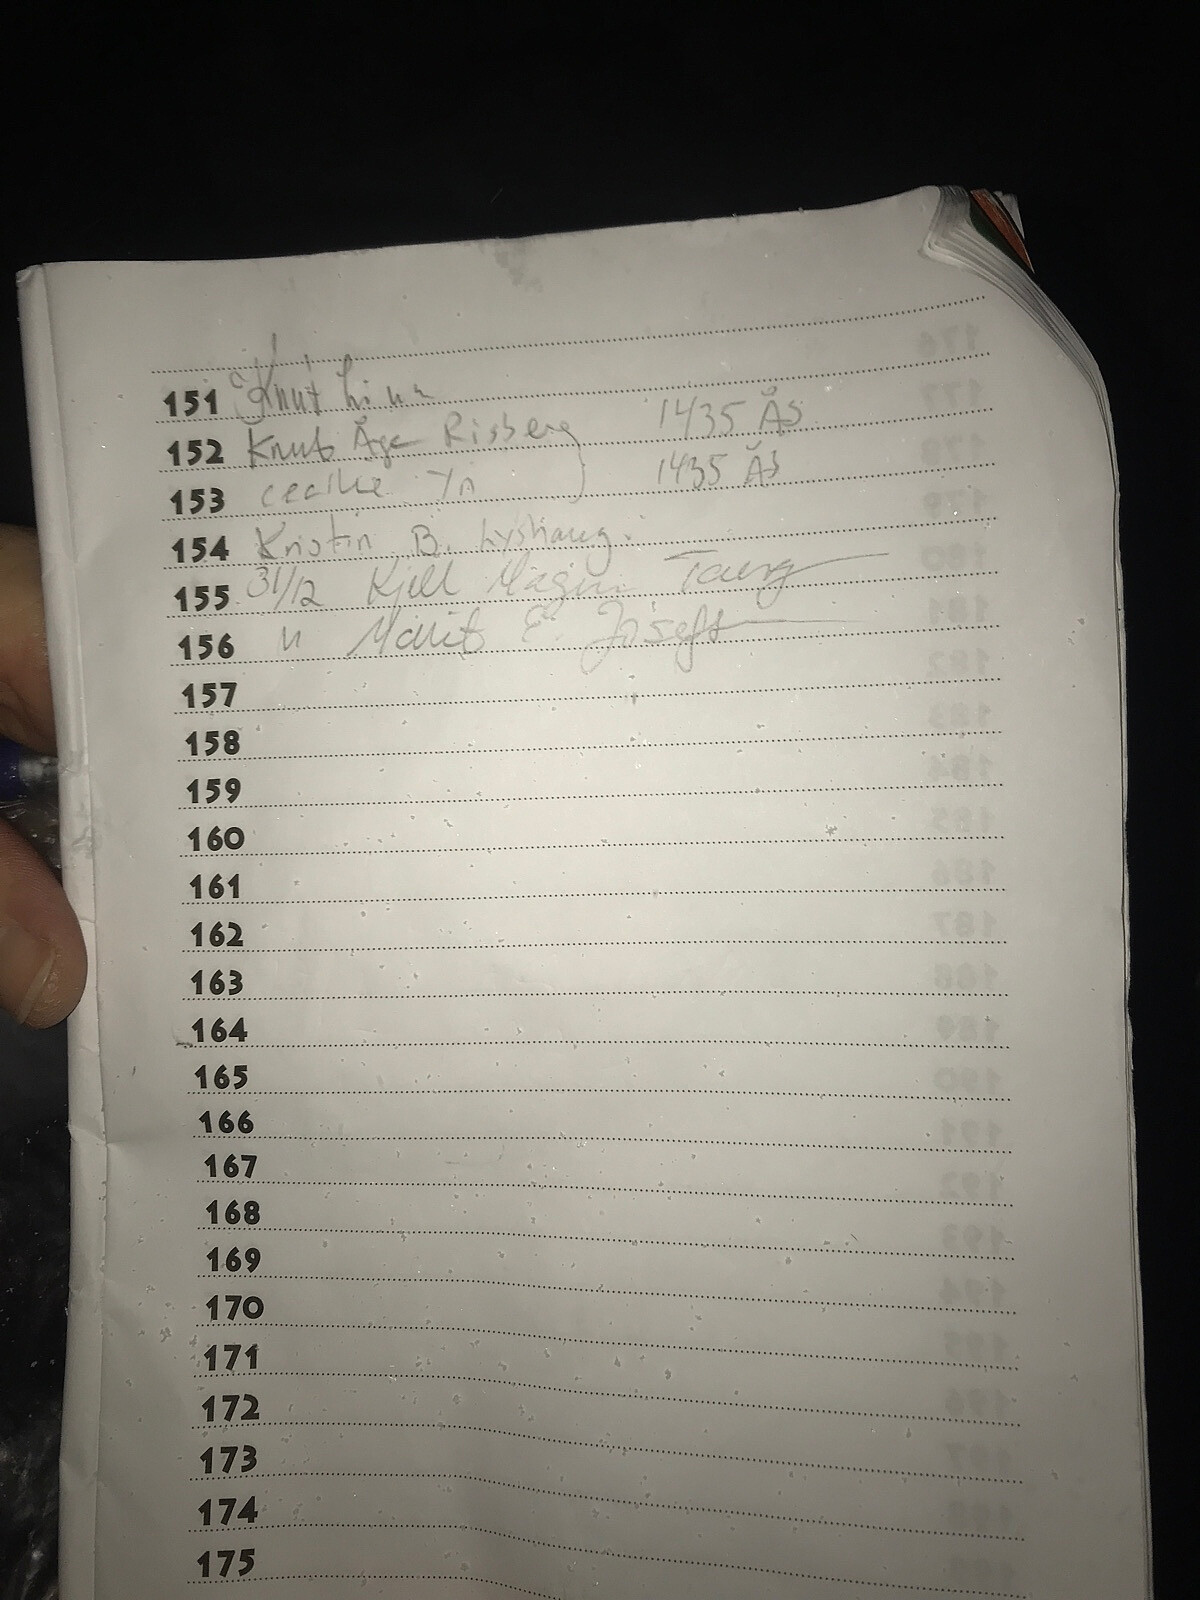 151 Knut
152 Knut Åge Risberg 1435 ÅS
153 Cecilie 1435 ÅS
154 Kristin B. Lyshaug.
155 31/12 Kjell Magne
156 " Marit E.
157
158
159
160
161
162
163
164
165
166
167
168
169
170
171
172
173
174
175